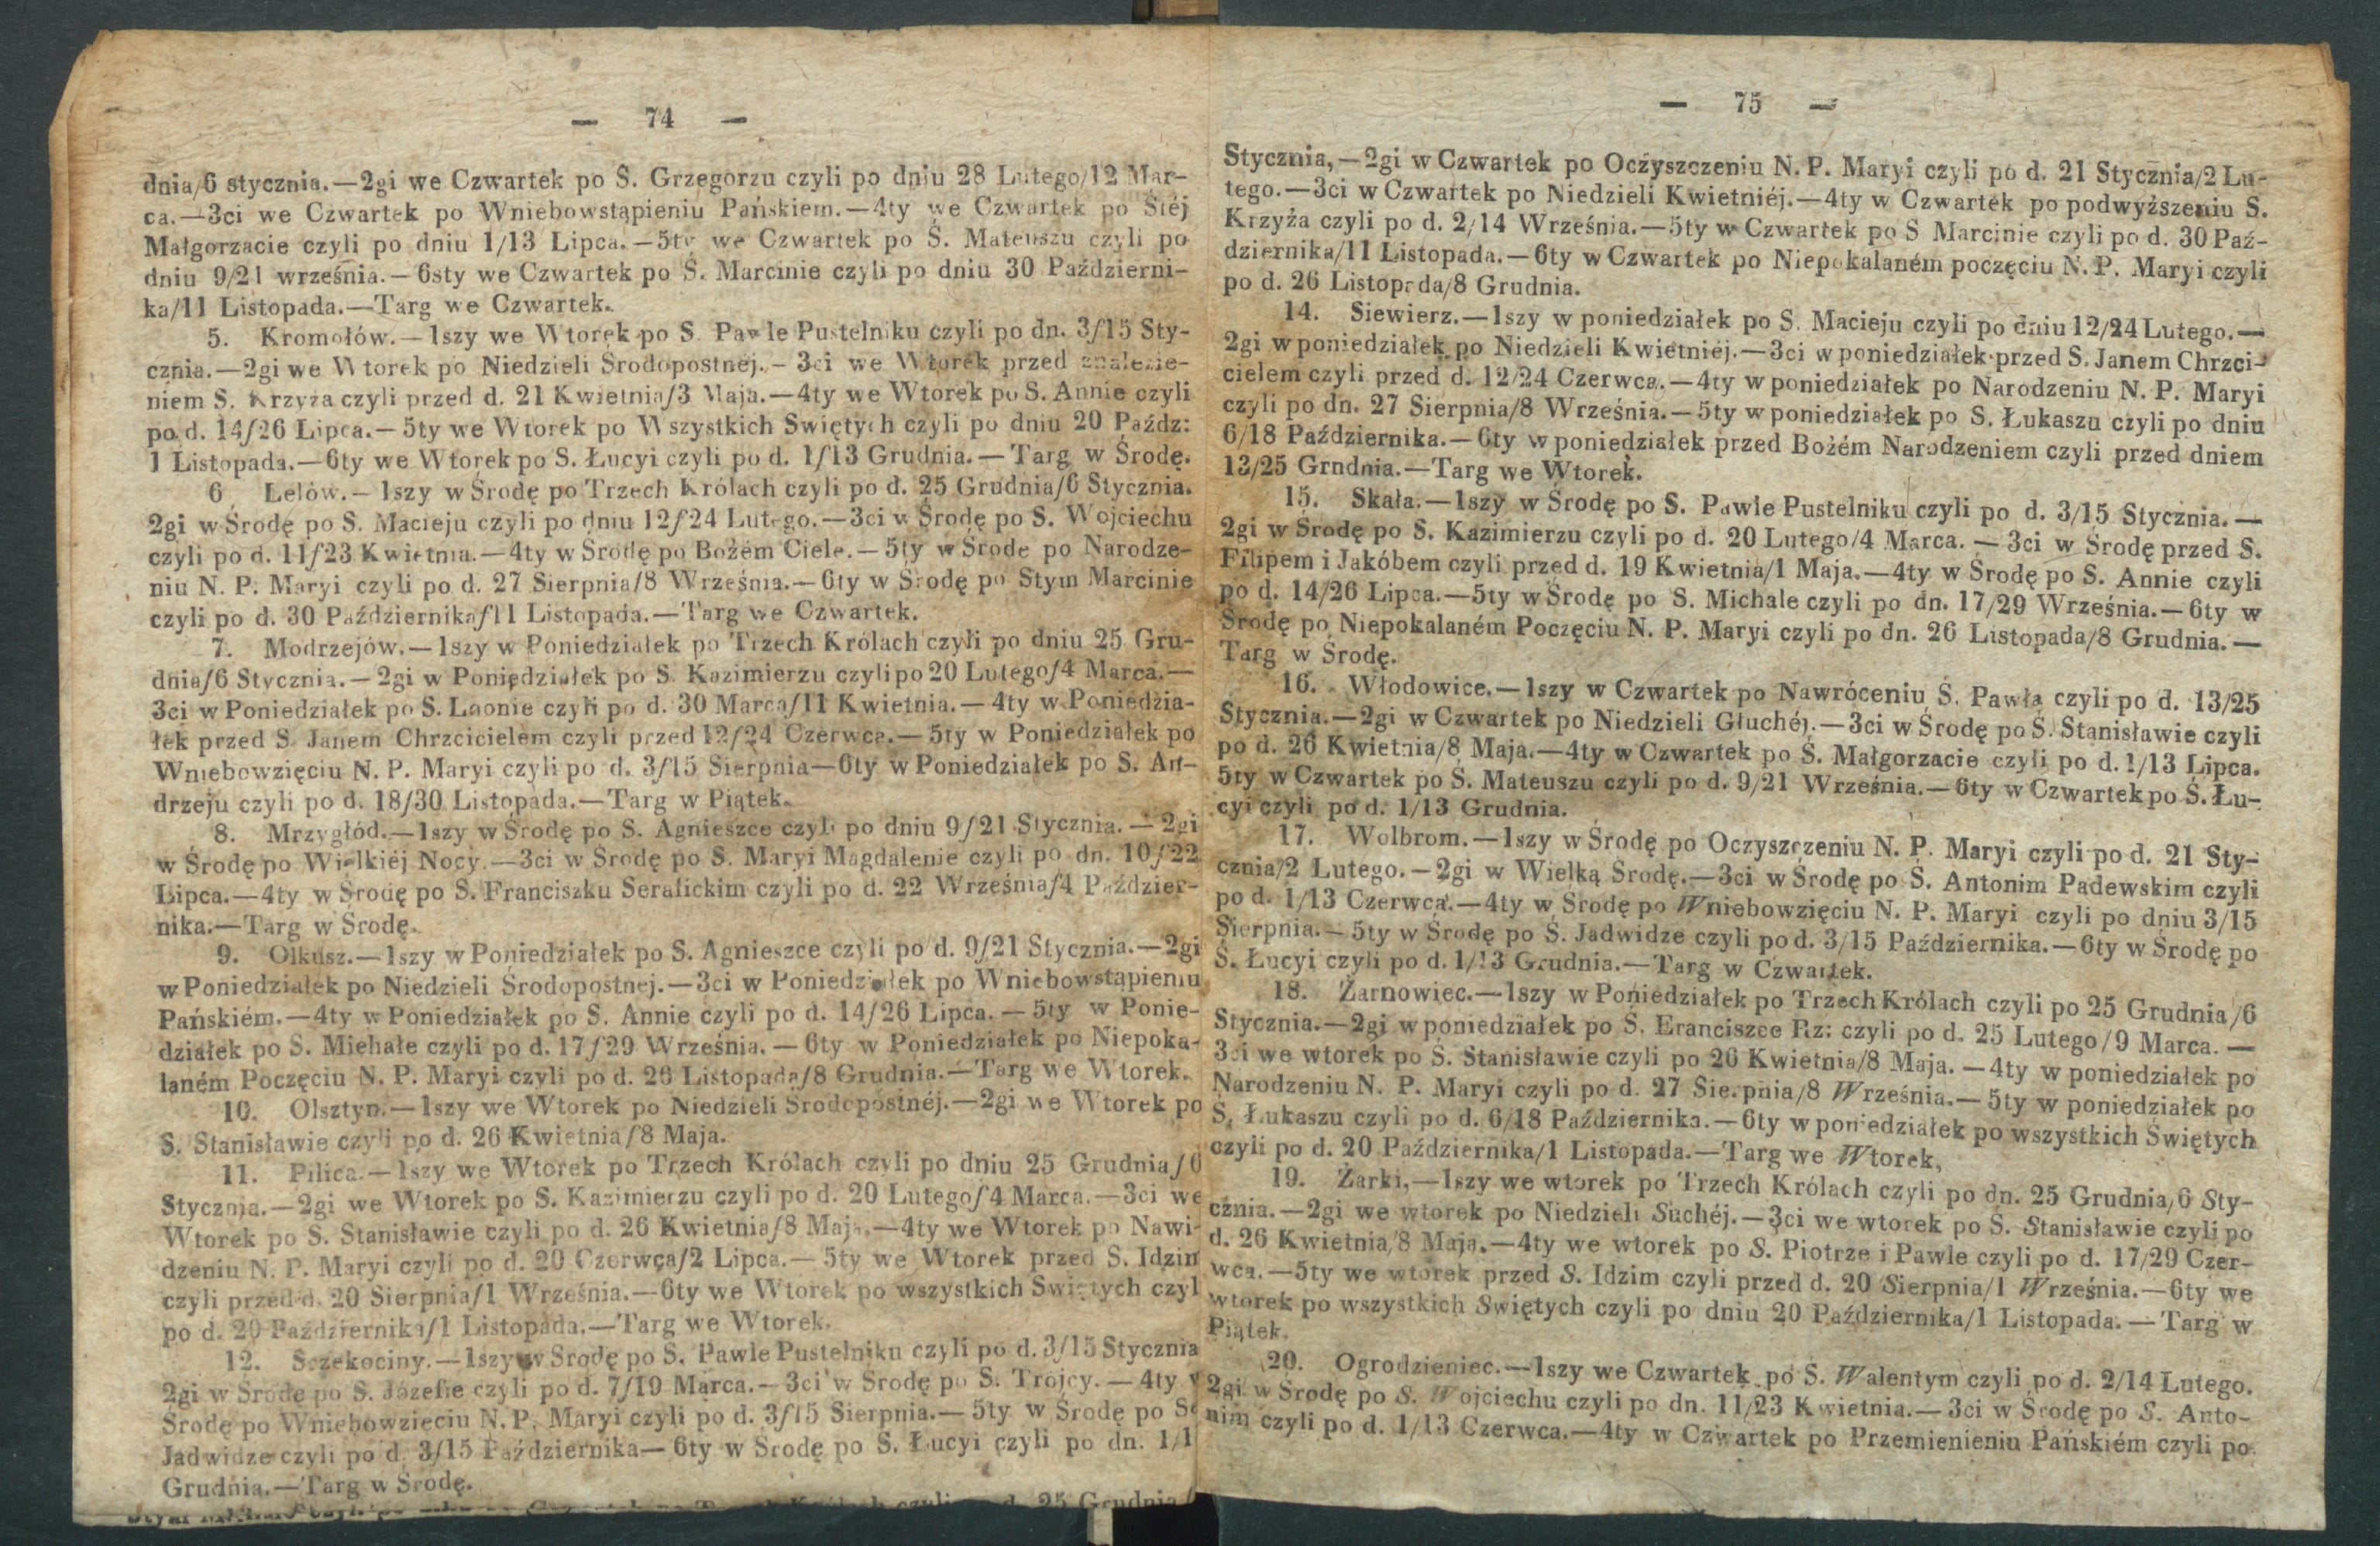 — 74 —
dnia/6 stycznia.—2gi we Czwartek po S. Grzegorzu czyli po dniu 28 Lutego/12 Mar-
ca.—3ci we Czwartek po Wniebowstąpieniu Pańskiem.—4ty we Czwartek po Siéj
Małgorzacie czyli po dniu 1/13 Lipca.—5ty we Czwartek po S. Mateuszu czyli po
dniu 9/21 września.—6sty we Czwartek po S. Marcinie czyli po dniu 30 Październi-
ka/11 Listopada.—Targ we Czwartek.
5. Kromołów.—1szy we Wtorek po S. Pawle Pustelniku czyli po dn. 3/15 Sty-
cznia.—2gi we Wtorek po Niedzieli Srodopostnej.—3ci we Wtorek przed znalezie-
niem S. Krzyża czyli przed d. 21 Kwietnia/3 Maja.—4ty we Wtorek po S. Annie czyli
po d. 14/26 Lipca.—5ty we Wtorek po Wszystkich Swiętych czyli po dniu 20 Paźdz:
1 Listopada.—6ty we Wtorek po S. Łucyi czyli po d. 1/13 Grudnia.—Targ w Środę.
6 Lelów.—1szy w Środę po Trzech Królach czyli po d. 25 Grudnia/6 Stycznia.
2gi w Środę po S. Macieju czyli po dniu 12/24 Lutego.—3ci w Środę po S. Wojciechu
czyli po d. 11/23 Kwietnia.—4ty w Środę po Bożem Ciele.—5ty w Srode po Narodze-
niu N. P. Maryi czyli po d. 27 Sierpnia/8 Września.—6ty w Środę po Stym Marcinie
czyli po d. 30 Października/11 Listopada.—Targ we Czwartek.
7. Modrzejów.—1szy w Poniedziałek po Trzech Królach czyli po dniu 25 Gru-
dnia/6 Stycznia.—2gi w Poniedziałek po S. Kazimierzu czyli po 20 Lutego/4 Marca.—
3ci w Poniedziałek po S. Laonie czyli po d. 30 Marca/11 Kwietnia.—4ty w Poniedzia-
łek przed S. Janem Chrzcicielem czyli przed 12/24 Czerwca.—5ty w Poniedziałek po
Wniebowzięciu N. P. Maryi czyli po d. 3/15 Sierpnia—6ty w Poniedziałek po S. An-
drzeju czyli po d. 18/30 Listopada.—Targ w Piątek.
8. Mrzygłód.—1szy w Środę po S. Agnieszce czyli po dniu 9/21 Stycznia.—2gi
w Środę po Wielkiéj Nocy.—3ci w Środę po S. Maryi Magdalenie czyli po dn. 10/22
Lipca.—4ty w Środę po S. Franciszku Serafickim czyli po d. 22 Września/4 Paździer-
nika.—Targ w Środę.
9. Olkusz.—1szy w Poniedziałek po S. Agnieszce czyli po d. 9/21 Stycznia.—2gi
w Poniedziałek po Niedzieli Srodopostnej.—3ci w Poniedziałek po Wniebowstąpieniu
Pańskiém.—4ty w Poniedziałek po S. Annie czyli po d. 14/26 Lipca.—5ty w Ponie-
działek po S. Miehałe czyli po d. 17/29 Września.—6ty w Poniedziałek po Niepoka-
laném Poczęciu N. P. Maryi czyli po d. 26 Listopada/8 Grudnia.—Targ we Wtorek.
10. Olsztyn.—1szy we Wtorek po Niedzieli Srodopostnéj.—2gi we Wtorek po
S. Stanisławie czyli po d. 26 Kwietnia/8 Maja.
11. Pilica.—1szy we Wtorek po Trzech Królach czyli po dniu 25 Grudnia/6
Stycznia.—2gi we Wtorek po S. Kazimierzu czyli po d. 20 Lutego/4 Marca.—3ci we
Wtorek po S. Stanisławie czyli po d. 26 Kwietnia/8 Maja.—4ty we Wtorek po Nawi-
dzeniu N. P. Maryi czyli po d. 20 Czerwca/2 Lipca.—5ty we Wtorek przed S. Idzim
czyli przed d. 20 Sierpnia/1 Września.—6ty we Wtorek po wszystkich Swiętych czyl
po d. 20 Października/1 Listopada.—Targ we Wtorek.
12. Szczekociny.—1szy w Srodę po S. Pawle Pustelniku czyli po d. 3/15 Stycznia
2gi w Srodę po S. Józefie czyli po d. 7/19 Marca.—3ci w Srodę po S. Trójcy.—4ty w
Srodę po Wniebowzięciu N. P. Maryi czyli po d. 3/15 Sierpnia.—5ty w Środę po S
Jadwidze czyli po d. 3/15 Października—6ty w Srodę po S. Łucyi czyli po dn. 1/1
Grudnia.—Targ w Środę.
25 Grudnia
— 75 —
Stycznia,—2gi w Czwartek po Oczyszczeniu N. P. Maryi czyli po d. 21 Stycznia/2 Lu-
tego.—3ci w Czwartek po Niedzieli Kwietniéj.—4ty w Czwartek po podwyższeniu S.
Krzyża czyli po d. 2/14 Września.—5ty w Czwartek po S Marcinie czyli po d. 30 Paź-
dziernika/11 Listopada.—6ty w Czwartek po Niepokalaném poczęciu N. P. Maryi czyli
po d. 26 Listopada/8 Grudnia.
14. Siewierz.—1szy w poniedziałek po S. Macieju czyli po dniu 12/24 Lutego.—
2gi w poniedziałek po Niedzieli Kwietniéj.—3ci w poniedziałek przed S. Janem Chrzci-
cielem czyli przed d. 12/24 Czerwca.—4ty w poniedziałek po Narodzeniu N. P. Maryi
czyli po dn. 27 Sierpnia/8 Września.—5ty w poniedziałek po S. Łukaszu czyli po dniu
6/18 Października.—6ty w poniedziałek przed Bożém Narodzeniem czyli przed dniem
13/25 Grndnia.—Targ we Wtorek.
15. Skała.—1szy w Środę po S. Pawle Pustelniku czyli po d. 3/15 Stycznia.—
2gi w Srodę po S. Kazimierzu czyli po d. 20 Lutego/4 Marca.—3ci w Srodę przed S.
Filipem i Jakóbem czyli przed d. 19 Kwietnia/1 Maja.—4ty w Środę po S. Annie czyli
po d. 14/26 Lipca.—5ty w Srodę po S. Michale czyli po dn. 17/29 Września.—6ty w
Srodę po Niepokalaném Poczęciu N. P. Maryi czyli po dn. 26 Listopada/8 Grudnia.—
Targ w Środę.
16. Włodowice.—1szy w Czwartek po Nawróceniu S. Pawła czyli po d. 13/25
Stycznia.—2gi w Czwartek po Niedzieli Głuchéj.—3ci w Środę po S. Stanisławie czyli
po d. 26 Kwietnia/8 Maja.—4ty w Czwartek po S. Małgorzacie czyli po d. 1/13 Lipca.
5ty w Czwartek po S. Mateuszu czyli po d. 9/21 Września.—6ty w Czwartek po S. Łu-
cyi czyli po d. 1/13 Grudnia.
17. Wolbrom.—1szy w Środę po Oczyszczeniu N. P. Maryi czyli po d. 21 Sty-
cznia/2 Lutego.—2gi w Wielką Srodę.—3ci w Srodę po S. Antonim Padewskim czyli
po d. 1/13 Czerwca.—4ty w Srodę po Wniebowzięciu N. P. Maryi czyli po dniu 3/15
Sierpnia.—5ty w Srodę po S. Jadwidze czyli po d. 3/15 Października.—6ty w Środę po
S. Łucyi czyli po d. 1/13 Grudnia.—Targ w Czwartek.
18. Żarnowiec.—1szy w Poniedziałek po Trzech Królach czyli po 25 Grudnia/6
Stycznia.—2gi w poniedziałek po S. Eranciszce Rz: czyli po d. 25 Lutego/9 Marca.—
3ci we wtorek po S. Stanisławie czyli po 26 Kwietnia/8 Maja.—4ty w poniedziałek po
Narodzeniu N. P. Maryi czyli po d. 27 Sierpnia/8 Września.—5ty w poniedziałek po
S. Łukaszu czyli po d. 6/18 Października.—6ty w poniedziałek po wszystkich Świętych
czyli po d. 20 Października/1 Listopada.—Targ we Wtorek,
19. Żarki,—1szy we wtorek po Trzech Królach czyli po dn. 25 Grudnia/6 Sty-
cznia.—2gi we wtorek po Niedzieli Suchéj.—3ci we wtorek po S. Stanisławie czyli po
d. 26 Kwietnia/8 Maja.—4ty we wtorek po S. Piotrze i Pawle czyli po d. 17/29 Czer-
wca.—5ty we wtorek przed S. Idzim czyli przed d. 20 Sierpnia/1 Września.—6ty we
wtorek po wszystkich Swiętych czyli po dniu 20 Października/1 Listopada.—Targ w
Piątek.
20. Ogrodzieniec.—1szy we Czwartek po S. Walentym czyli po d. 2/14 Lutego.
2gi w Srodę po S. Wojciechu czyli po dn. 11/23 Kwietnia.—3ci w Srodę po S. Anto-
nim czyli po d. 1/13 Czerwca.—4ty w Czwartek po Przemienieniu Pańskiém czyli po